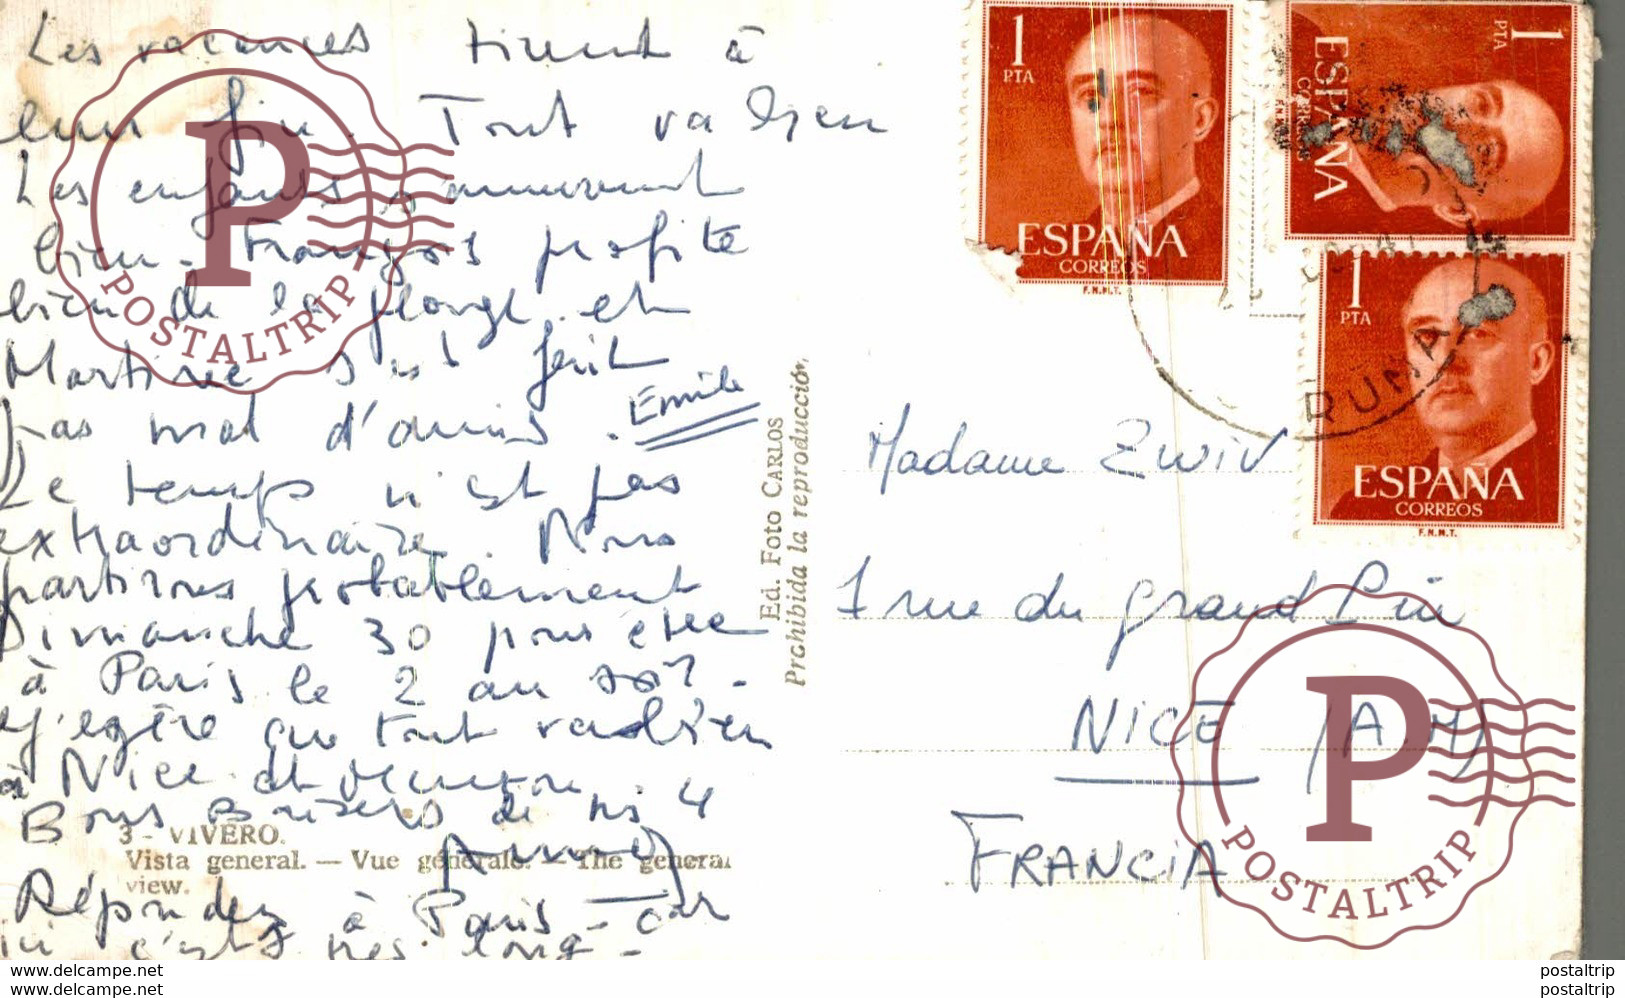 Les vacances tirent à
leur fin. Tout va bien
Les enfants s'amusent
bien. François profite
bien de la plonge et
Martine s'est fait
pas mal d'amis. Emile
Le temps n'est pas
extraordinaire. Nous
partirons probablement
Dimanche 30 pour être
à Paris le 2 au soir.
J'espère que tout va bien
à Nice et Menton
Bons Baisers de nous 4
Répondez à Paris - car
ici c'est très long -
3 - VIVERO.
Vista general. — Vue générale. — The general
view.
Ed. Foto CARLOS
Prohibida la reproducción
1
PTA
ESPAÑA
CORREOS
F.N.M.T.
1
PTA
ESPAÑA
CORREOS
1
PTA
ESPAÑA
CORREOS
F.N.M.T.
RUÑA
Madame Zwiv
1 rue du Grand Pin
NICE (A M)
FRANCIA
P
POSTALTRIP
P
POSTALTRIP
www.delcampe.net
www.delcampe.net
postaltrip
postaltrip